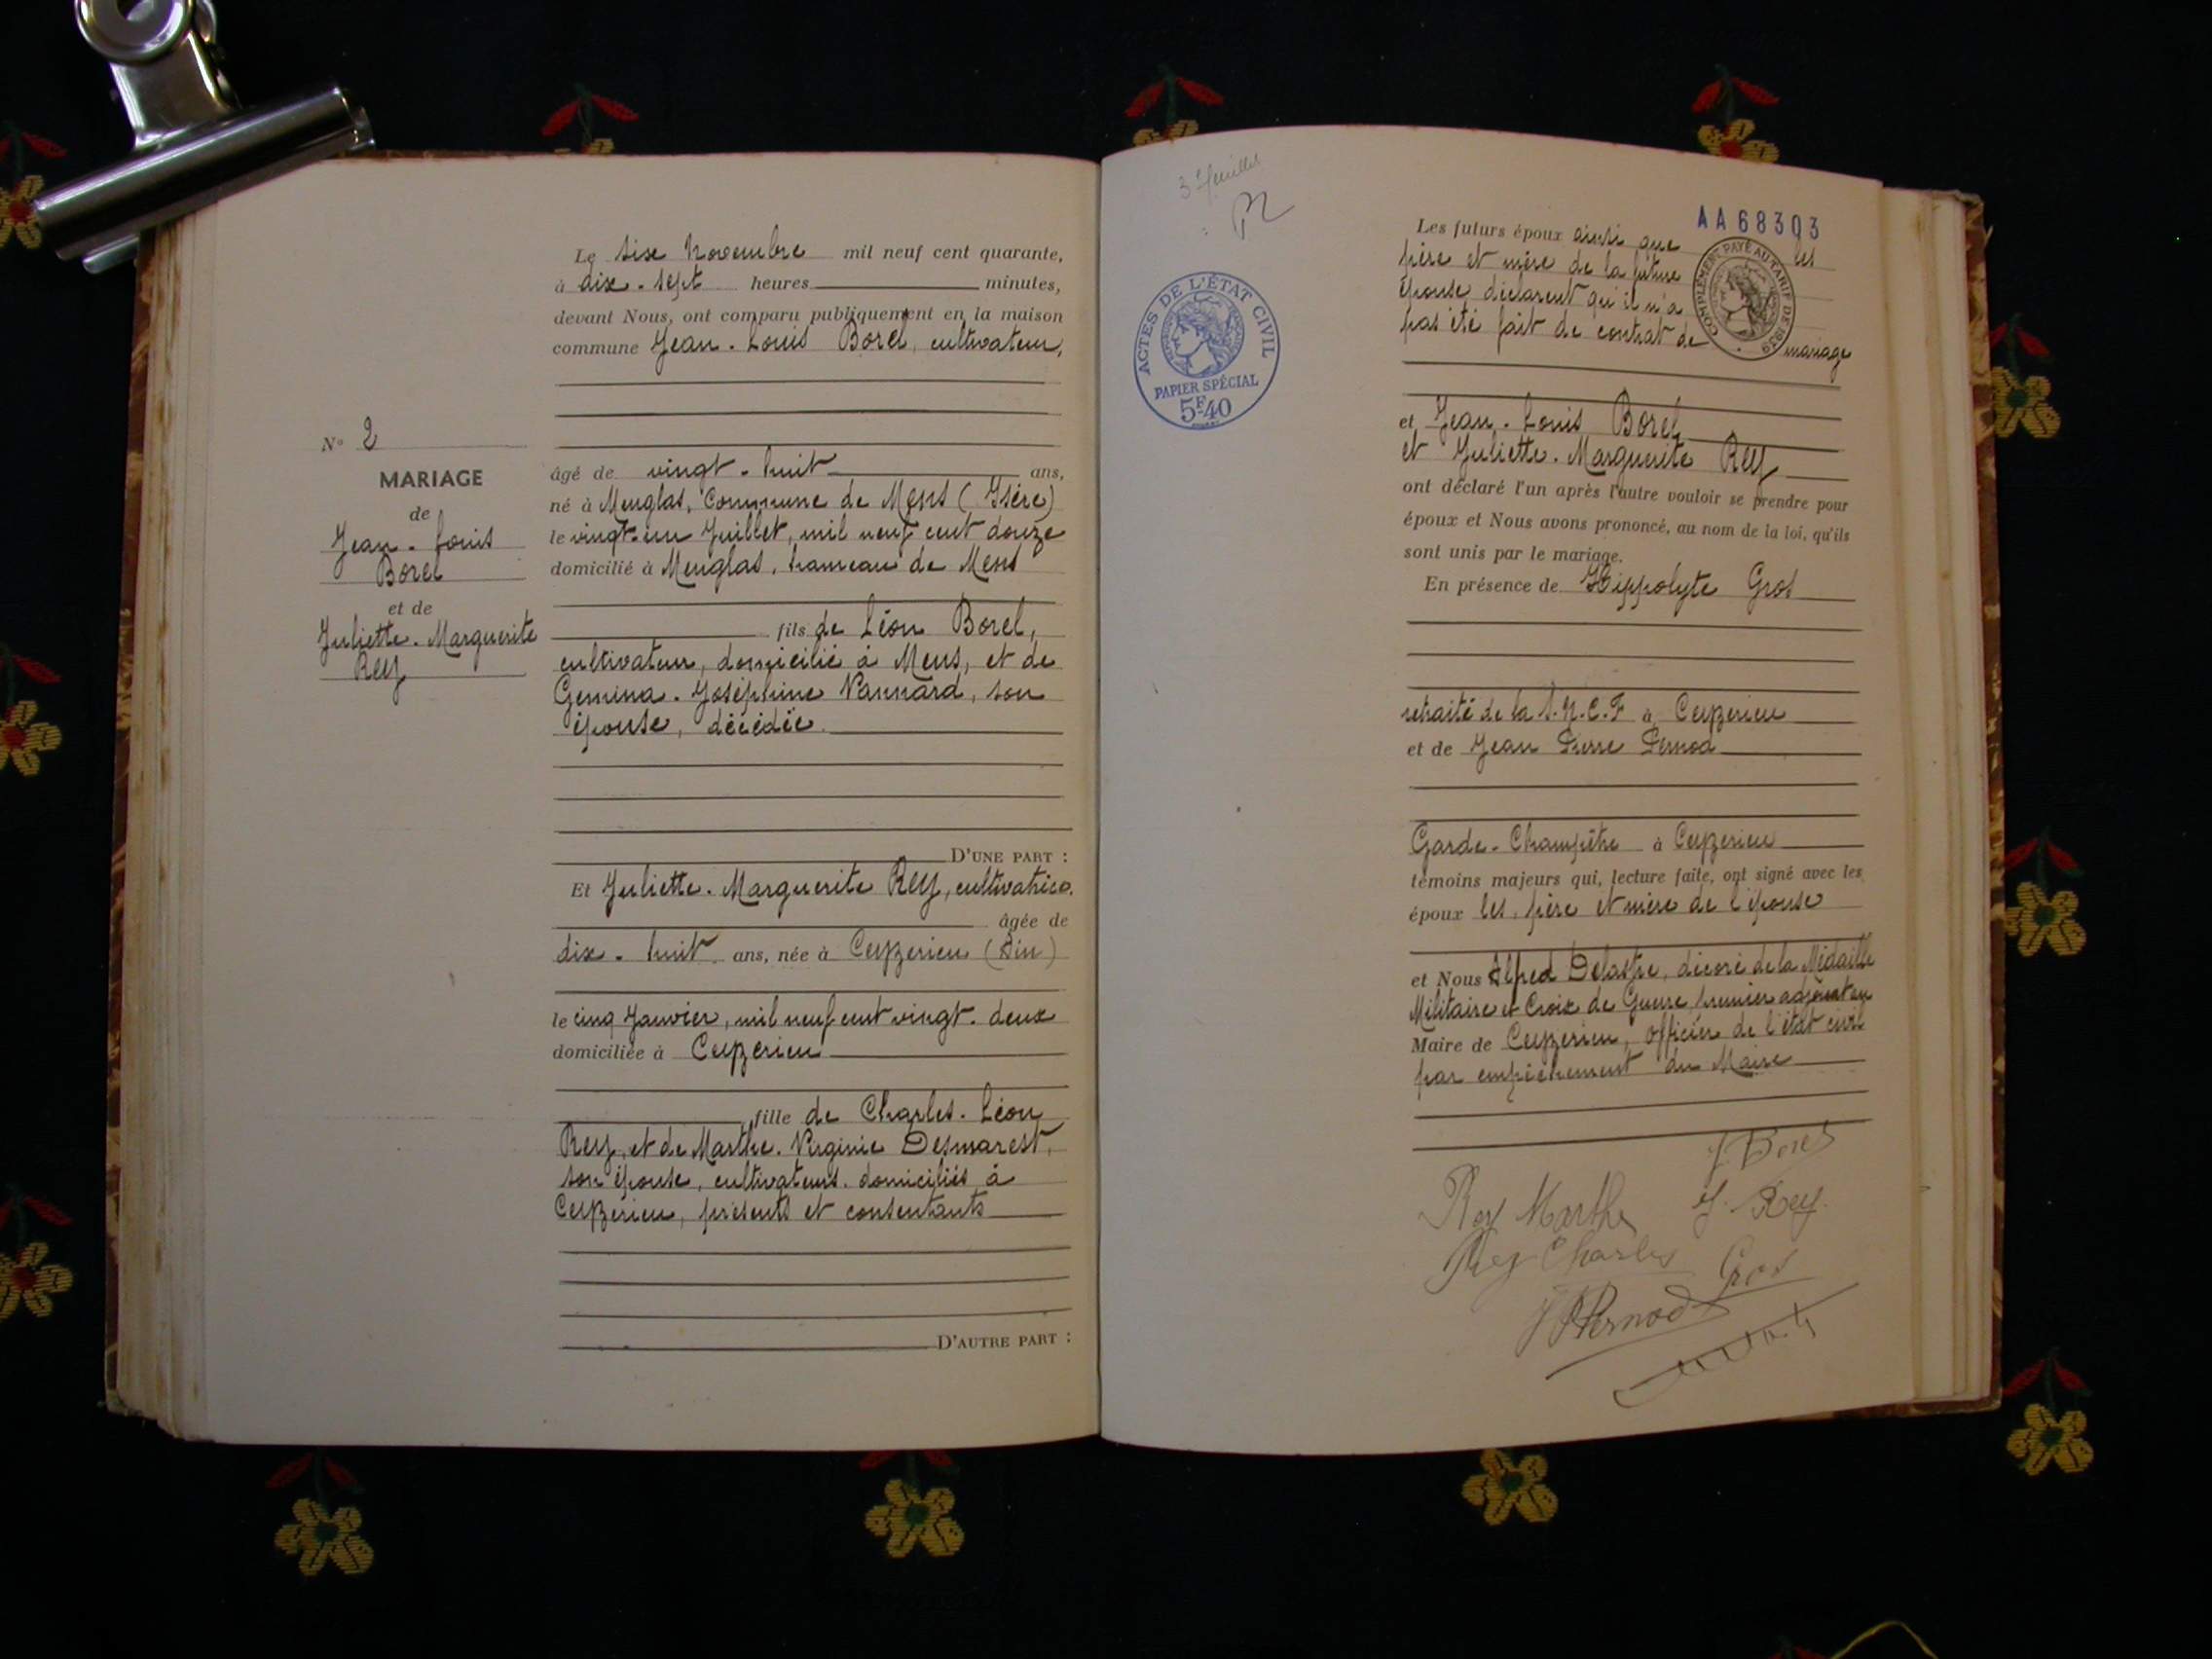 N° 2
MARIAGE
de
Jean-Louis
Borel
et de
Juliette-Marguerite
Rey
Le six Novembre mil neuf cent quarante,
à dix-sept heures minutes,
devant Nous, ont comparu publiquement en la maison
commune Jean-Louis Borel, cultivateur,
âgé de vingt-huit ans,
né à Menglas, Commune de Mens (Isère)
le vingt-un Juillet, mil neuf cent douze
domicilié à Menglas, hameau de Mens
fils de Léon Borel,
cultivateur, domicilié à Mens, et de
Gemina-Joséphine Vannard, son
épouse, décédée.
D'UNE PART :
Et Juliette-Marguerite Rey, cultivatrice,
âgée de
dix-huit ans, née à Ceyzerieu (Ain)
le cinq Janvier, mil neuf cent vingt-deux
domiciliée à Ceyzerieu
fille de Charles-Léon
Rey, et de Marthe-Virginie Desmarest,
son épouse, cultivateurs domiciliés à
Ceyzerieu, présents et consentants
D'AUTRE PART :
3e feuillet
ACTES DE L'ÉTAT CIVIL
PAPIER SPÉCIAL
5F40
AA68303
COMPLÉMENT PAYÉ AU TARIF DE 1939
Les futurs époux ainsi que les
père et mère de la future
épouse déclarent qu'il n'a
pas été fait de contrat de mariage
et Jean-Louis Borel
et Juliette-Marguerite Rey
ont déclaré l'un après l'autre vouloir se prendre pour
époux et Nous avons prononcé, au nom de la loi, qu'ils
sont unis par le mariage.
En présence de Hippolyte Gros
retraité de la S.N.C.F à Ceyzerieu
et de Jean Pierre Pernod
Garde-Champêtre à Ceyzerieu
témoins majeurs qui, lecture faite, ont signé avec les
époux les père et mère de l'épouse
et Nous Alfred Delastre, décoré de la Médaille
Militaire et Croix de Guerre, premier adjoint au
Maire de Ceyzerieu, officier de l'état civil
par empêchement du Maire
J. Borel
Rey Marthe J. Rey.
Rey Charles Gros
JPPernod